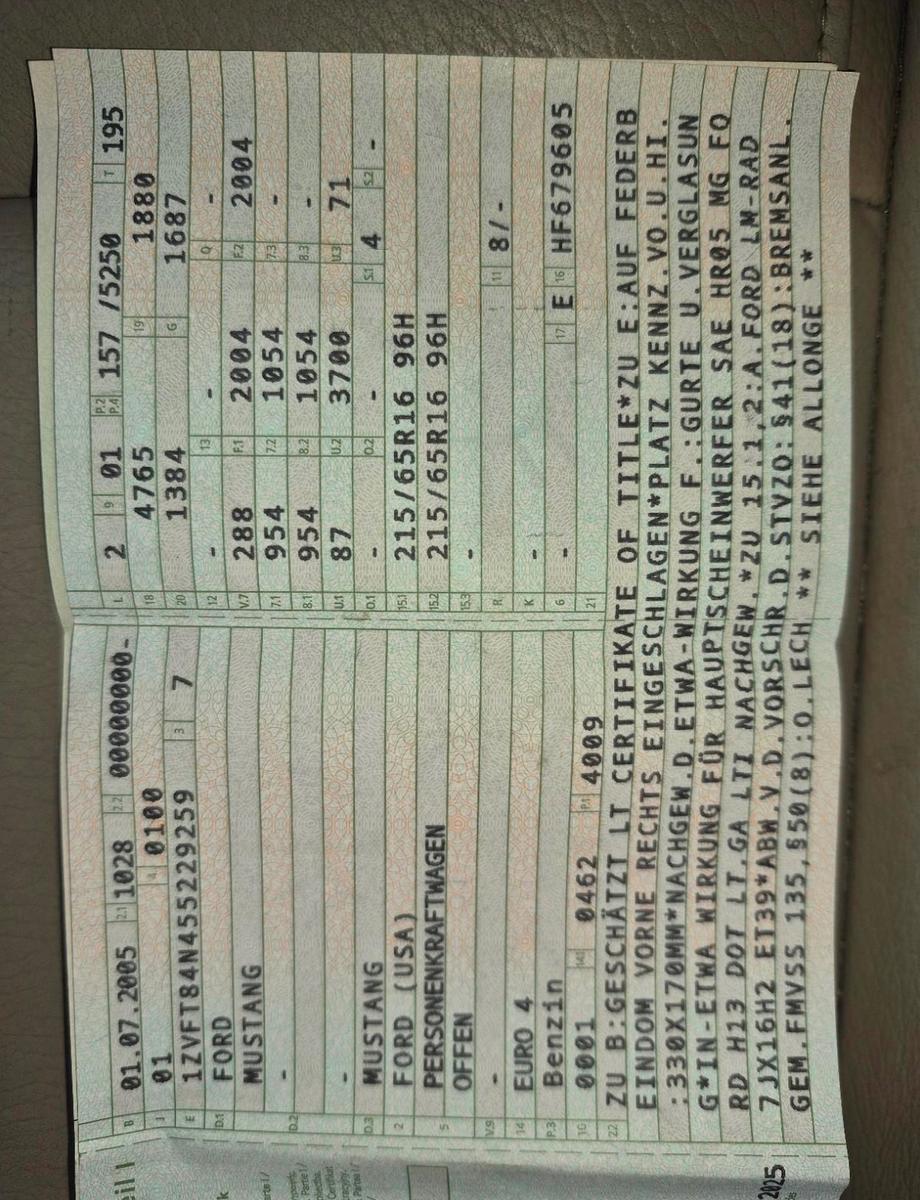 B 01.07.2005 2.1 1028 2.2 00000000-
J 01 4 0100
E 1ZVFT84N455229259 3 7
D.1 FORD
MUSTANG
D.2 -
-
D.3 MUSTANG
2 FORD (USA)
5 PERSONENKRAFTWAGEN
OFFEN
V.9 -
14 EURO 4
P.3 Benzin
10 0001 14.1 0462 P.1 4009
L 2 9 01 P.2 P.4 157 /5250 T 195
18 4765 19 1880
20 1384 G 1687
12 - 13 - Q -
V.7 288 F.1 2004 F.2 2004
7.1 954 7.2 1054 7.3 -
8.1 954 8.2 1054 8.3 -
U.1 87 U.2 3700 U.3 71
O.1 - O.2 - S.1 4 S.2 -
15.1 215/65R16 96H
15.2 215/65R16 96H
15.3 -
R - 11 8/-
K -
6 - 17 E 16 HF679605
21
22 ZU B:GESCHÄTZT LT CERTIFIKATE OF TITLE*ZU E:AUF FEDERB
EINDOM VORNE RECHTS EINGESCHLAGEN*PLATZ KENNZ.VO.U.HI.
:330X170MM*NACHGEW.D.ETWA-WIRKUNG F.:GURTE U.VERGLASUN
G*IN-ETWA WIRKUNG FÜR HAUPTSCHEINWERFER SAE HR05 MG FO
RD H13 DOT LT.GA LTI NACHGEW.*ZU 15.1,2:A.FORD LM-RAD
7JX16H2 ET39*ABW.V.D.VORSCHR.D.STVZO:§41(18):BREMSANL.
GEM.FMVSS 135,§50(8):O.LECH ** SIEHE ALLONGE **
eil I
2025